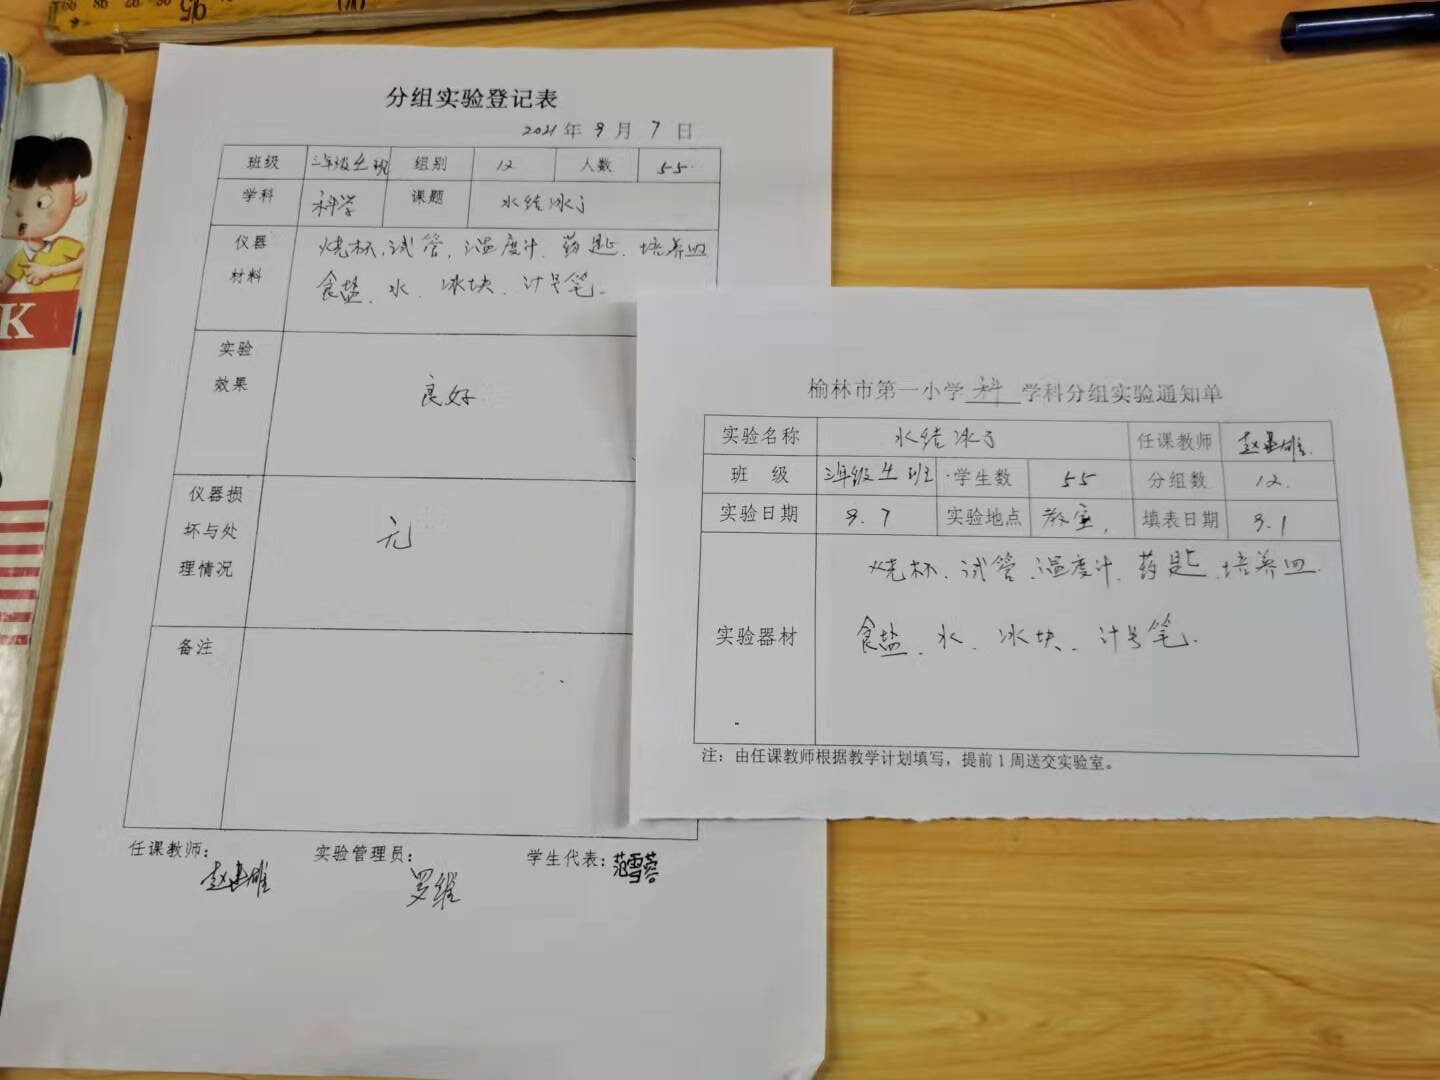 95
K
分组实验登记表
2021年9月7日
班级 三年级4班 组别 12 人数 55
学科 科学 课题 水结冰了
仪器材料 烧杯、试管、温度计、药匙、培养皿
食盐、水、冰块、计号笔
实验效果 良好
仪器损坏与处理情况 无
备注
任课教师：赵建雄 实验管理员：罗维 学生代表：范雪蓉
榆林市第一小学 科 学科分组实验通知单
实验名称 水结冰了 任课教师 赵建雄
班 级 三年级4班 学生数 55 分组数 12
实验日期 9.7 实验地点 教室 填表日期 9.1
实验器材 烧杯、试管、温度计、药匙、培养皿
食盐、水、冰块、计号笔
注：由任课教师根据教学计划填写，提前1周送交实验室。